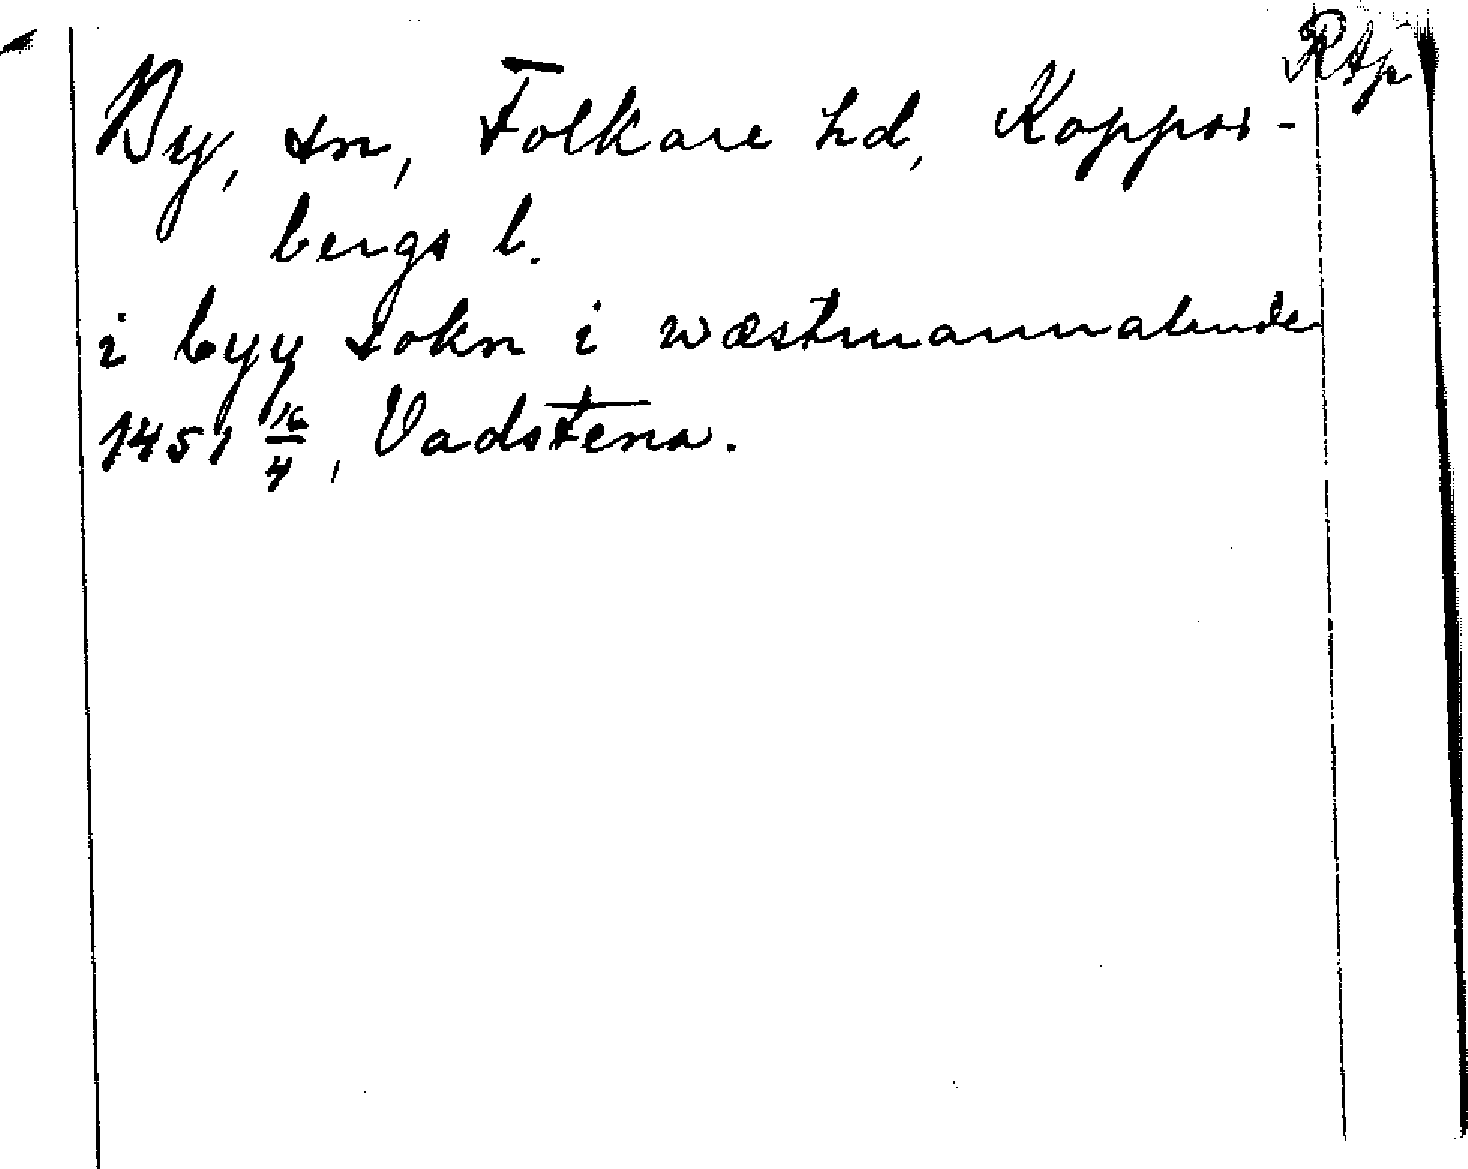 Rtp
By, sn, Folkare hd, Koppar-
bergs l.
i byy sokn i wæstmannalande
1451 16/4, Vadstena.